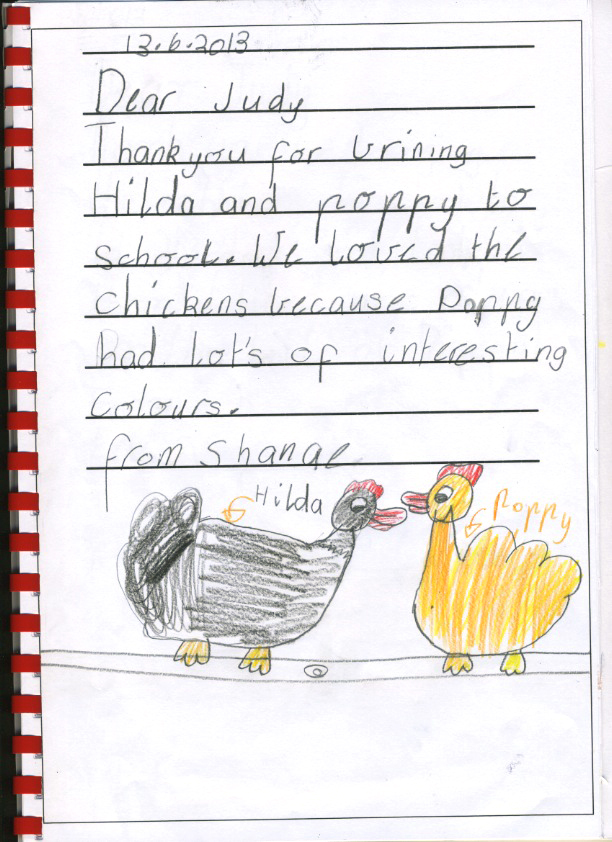 13.6.2013
Dear Judy
Thankyou for brining
Hilda and poppy to
school. We loved the
chickens because Poppy
had lot's of interesting
colours.
from Shanae
Hilda
Poppy